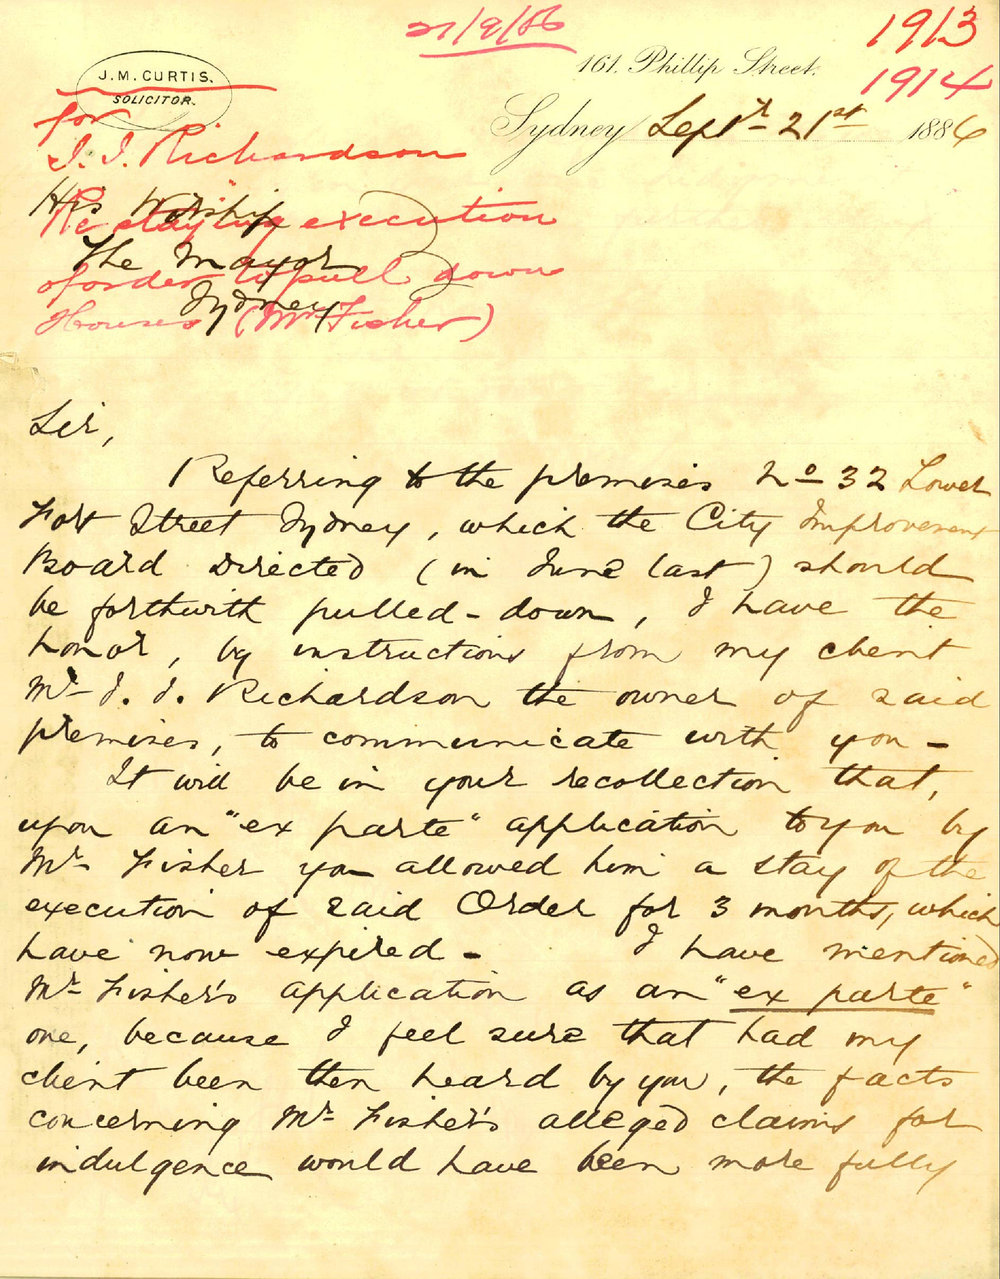 21/9/86
1913
1914
J. M. CURTIS.
SOLICITOR.
161. Phillip Street.
Sydney Sept 21st 1886
for
J. J. Richardson
Re staying execution
of order to pull down
Houses (Mr Fisher)
His Worship
The Mayor
Sydney
Sir,
Referring to the premises No 32 Lower
Fort Street Sydney, which the City Improvement
Board Directed (in June last) should
be forthwith pulled-down, I have the
honor, by instructions from my client
Mr J. J. Richardson the owner of said
premises, to communicate with you -
It will be in your recollection that,
upon an "ex parte" application to you by
Mr Fisher you allowed him a stay of the
execution of said Order for 3 months, which
have now expired - I have mentioned
Mr Fisher's application as an "ex parte"
one, because I feel sure that had my
client been then heard by you, the facts
concerning Mr Fisher's alleged claims for
indulgence would have been more fully